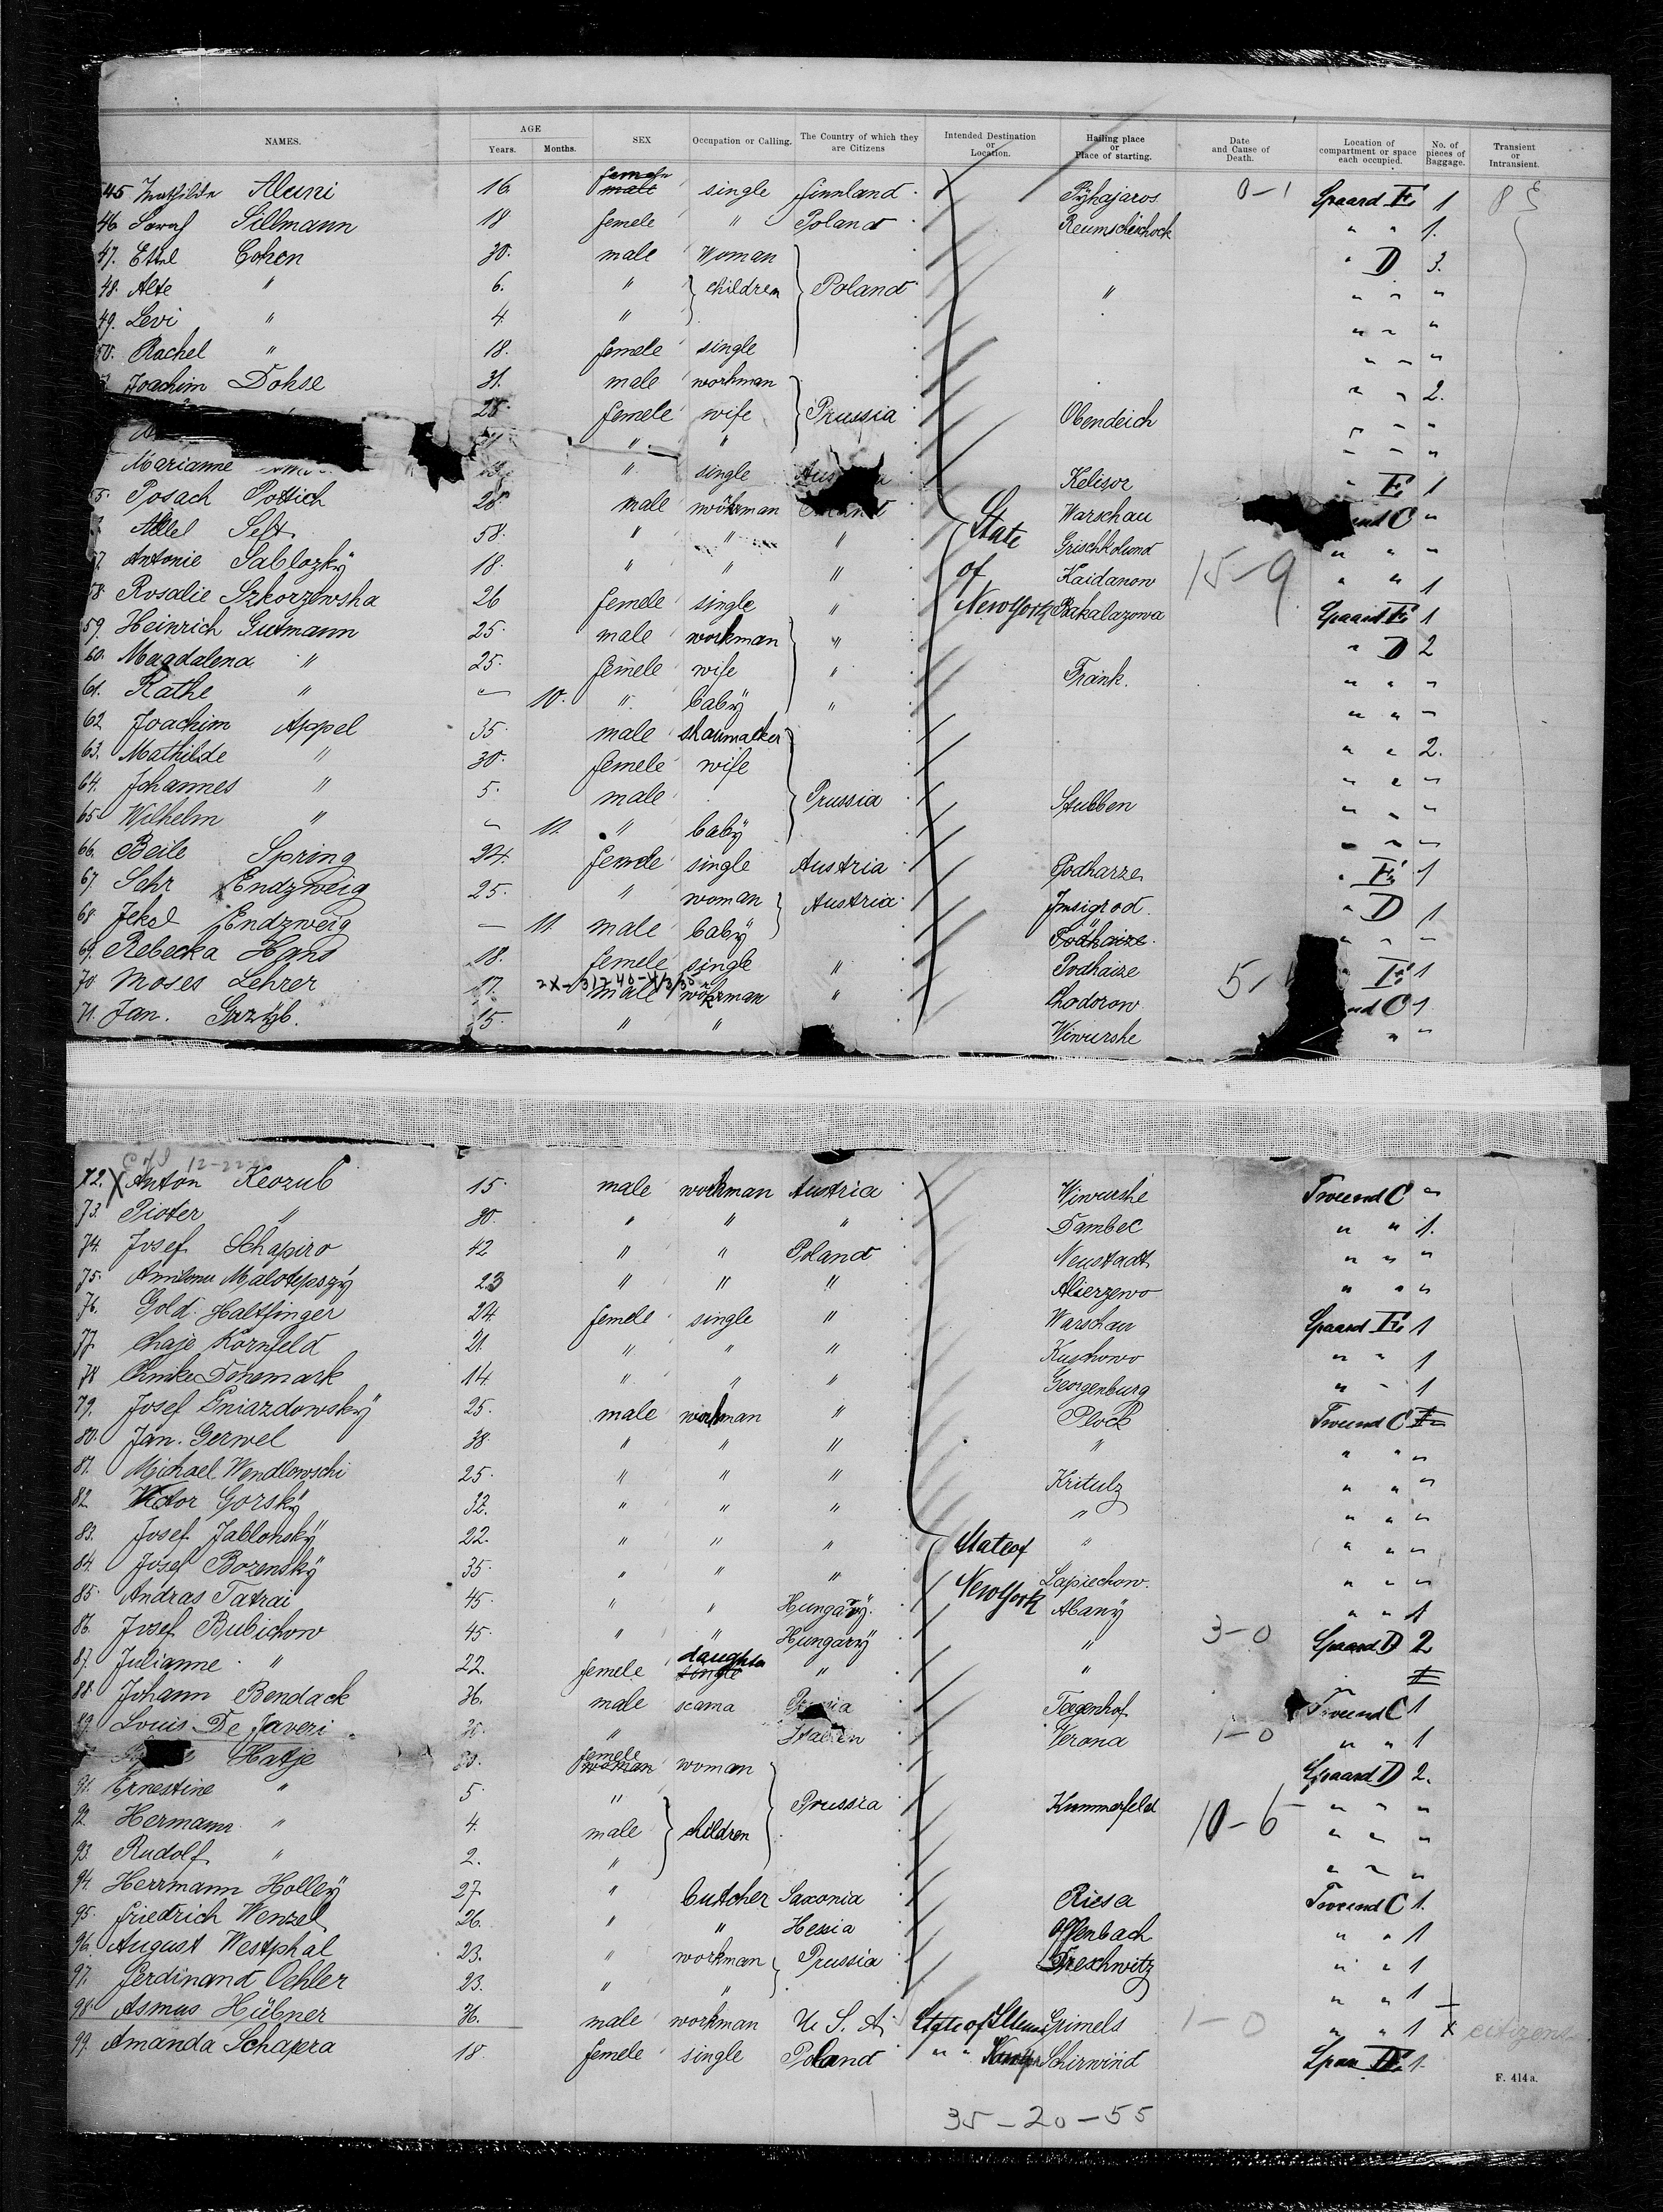 NAMES. AGE Years. Months. SEX Occupation or Calling. The Country of which they are Citizens Intended Destination or Location. Hailing place or Place of starting. Date and Cause of Death. Location of compartment or space each occupied. No. of pieces of Baggage. Transient or Intransient.
45 Mathilde Aluni 16. male female single Finnland Pÿhajaros 0-1 Spaard E 1 8
46. Sillmann 18 femele " Poland Reumscheschock " " 1.
47. Ettel Cohen 30. male Woman " D 3.
48. Alte " 6. " children Poland " " " "
49. Levi " 4. " " " "
50. Rachel " 18. femele single " " "
Joachim Dohse 31. male workman " " 2.
28. femele wife Prussia Obendeich " " "
" " " " "
Marianne " single Kelisor " E 1
5. Posach Pottich 28. male workman Warschau C "
Seft 58. " " " Grischkolund " " "
57. Antonie Sablozkÿ 18. " " " State of New York Kaidanow 15-9 " " 1
58. Rosalie Szkorzewska 26 femele single " Bakalazowa Spaard E 1
59. Heinrich Gutmann 25. male workman " " D 2
60. Magdalena " 25. femele wife " Frank. " " "
61. Kathe " — 10. " babÿ " " " "
62. Joachim Appel 35. male shaumacker " " 2.
63. Mathilde " 30. femele wife " " "
64. Johannes " 5. male Prussia Stubben " " "
65. Wilhelm " — 11. " babÿ " " "
66. Beile Spring 24. femele single Austria Podharze " E 1
67. Sehr Endzweig 25. " woman Austria Jmsigrod. " D 1
68. Jekel Endzweig — 11. male babÿ Podhaize. " " "
69. Rebecka Hand 18. femele single " Podhaize 5- " E 1
70. Moses Lehrer 17. 2X-31740-4/3/35 male workman " Chodorow C 1
71. Jan. Grzÿb. 15. " " Wiwurshe " "
12-22
72. X Anton Keozub 15. male workman Austria Wiwurshe Tweend C "
73. Pioter " 30. " " " Dambec " " 1.
74. Josef Schapiro 42 " " Poland Neustadt " " "
75. Malotepszÿ 23 " " " Alierzewo " " "
76. Gold. Haltfinger 24. femele single " Warschau Spaard E 1
77. Chaje Kornfeld 21. " " " Kuschowo " " 1
78. Denemark 14. " " " Georgenburg " " 1
79. Josef Gniazdowskÿ 25. male workman " Plock Tweend C
80. Jan. Gerwel 38. " " " " " " "
81. Michael Wendlowschi 25. " " " Kritulz " " "
82. Victor Gorskÿ 32. " " " " " " "
83. Josef Jablonskÿ 22. " " " State of New York " " " "
84. Josef Bozenskÿ 35. " " " Lapiechow. " " "
85. Andras Tatrai 45. " " Hungarÿ. Abanÿ " " 1
86. Josef Bubichow 45. " " Hungarÿ " 3-0 Spaard D 2
87. Julianne " 22. femele single daughter " "
88. Johann Bendack 36. male seama Teegenhof Tweend C 1
89. Louis De Javeri 30. " Italien Verona 1-0 " " 1
Hatje 30. woman femele woman Spaard D 2.
91. Ernestine " 5. " Prussia Kummerfeld 10-6 " " "
92. Hermann " 4. male children " " "
93. Rudolf " 2. " " " "
94. Herrmann Holleÿ 27. " butcher Saxonia Riesa Tweend C 1.
95. Friedrich Wenzel 26. " " Hessia Offenbach " " 1
96. August Westphal 23. " workman Prussia Treshwitz " " 1
97. Ferdinand Oehler 23. " " " " 1
98. Asmus Hübner 36. male workman U. S. A. State of Grimels 1-0 " " 1 X citizens
99. Amanda Schapra 18. femele single Poland " " Schirwind Spaa E 1.
F. 414 a.
35-20-55